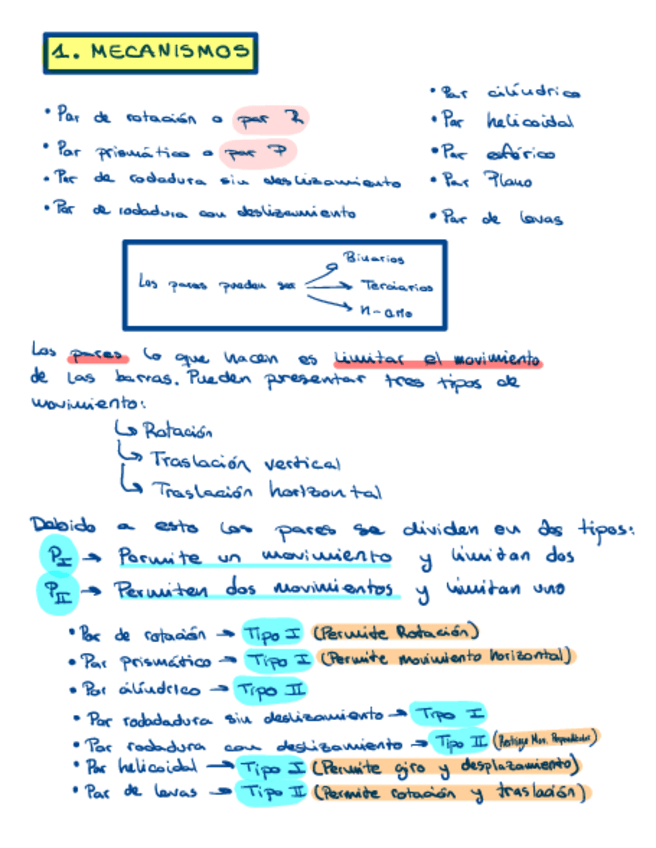 1. MECANISMOS
• Par de rotación o par R
• Par prismático o par P
• Par de rodadura sin deslizamiento
• Par de rodadura con deslizamiento
• Par cilíndrico
• Par helicoidal
• Par esférico
• Par Plano
• Par de levas
Los pares pueden ser
Binarios
Terciarios
n-ario
Los pares lo que hacen es limitar el movimiento
de las barras. Pueden presentar tres tipos de
movimiento:
↳ Rotación
↳ Traslación vertical
↳ Traslación horizontal
Debido a esto los pares se dividen en dos tipos:
PI → Permite un movimiento y limitan dos
PII → Permiten dos movimientos y limitan uno
• Par de rotación → Tipo I (Permite Rotación)
• Par prismático → Tipo I (Permite movimiento horizontal)
• Par cilíndrico → Tipo II
• Par rodadadura sin deslizamiento → Tipo I
• Par rodadura con deslizamiento → Tipo II (Restringe Mov. Perpendicular)
• Par helicoidal → Tipo I (Permite giro y desplazamiento)
• Par de levas → Tipo II (Permite rotación y traslación)